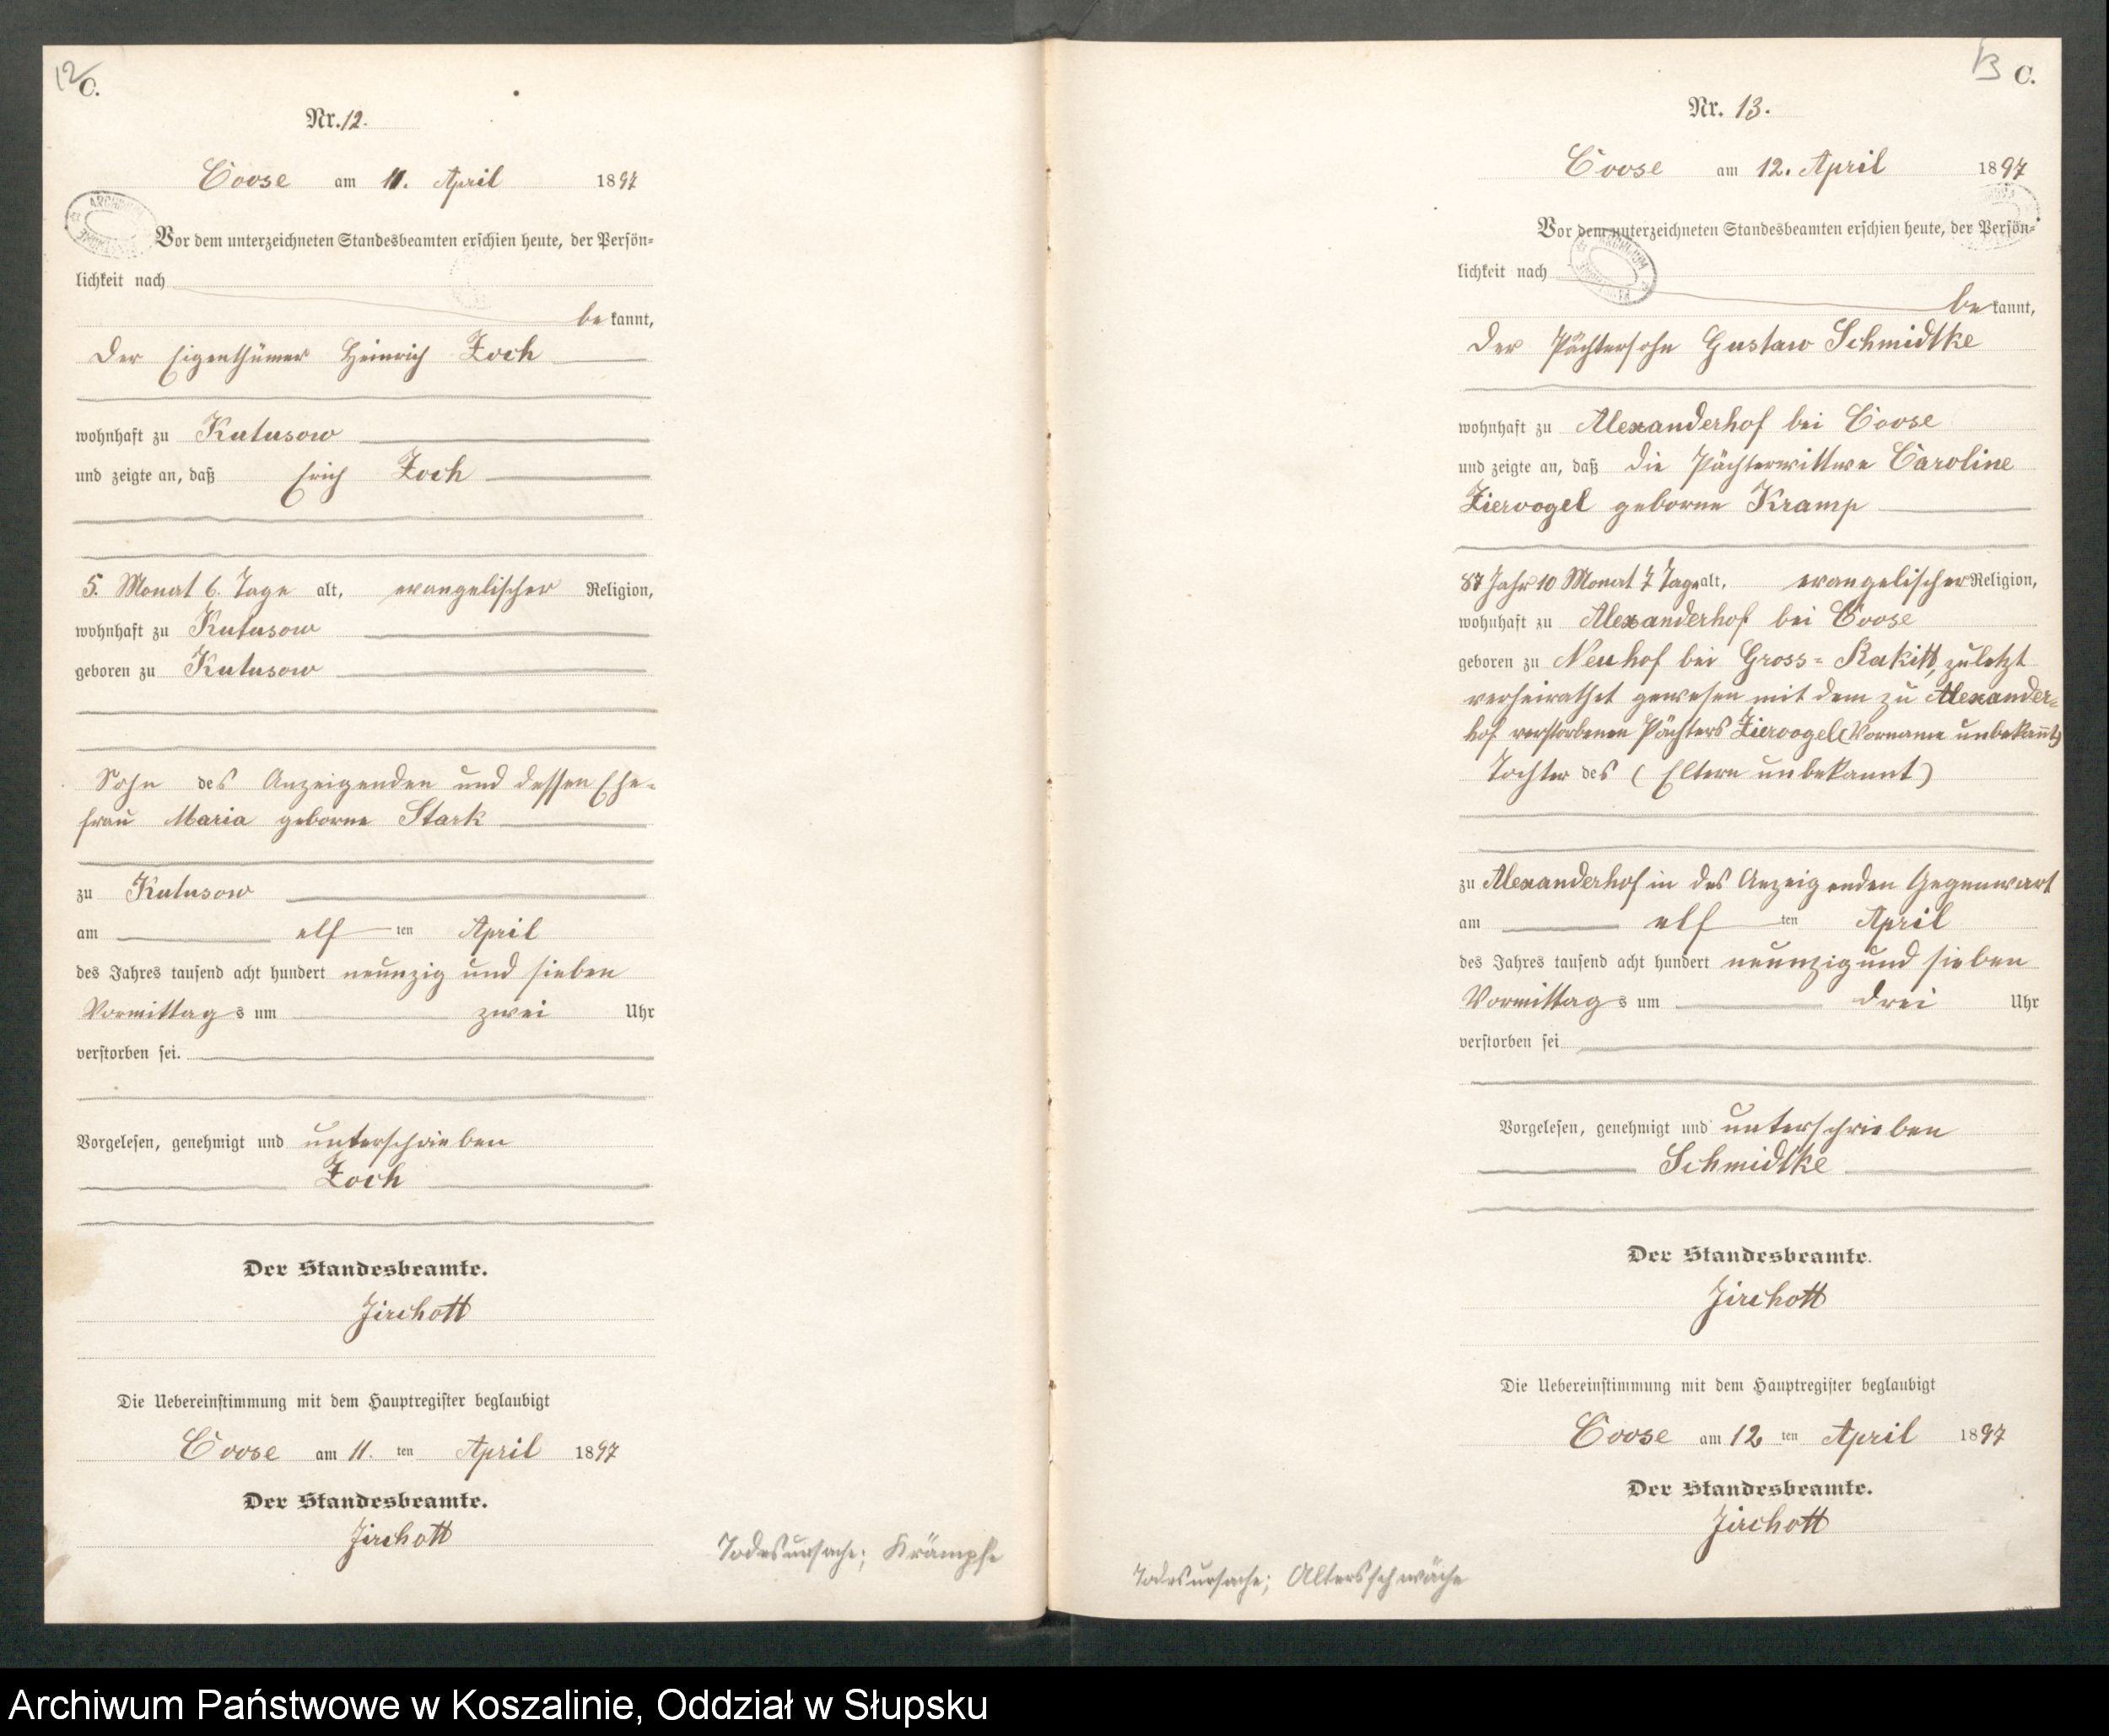 12
C.
Nr. 12.
Coose am 11. April 1897
ARCHIWUM
Vor dem unterzeichneten Standesbeamten erschien heute, der Persön=
lichkeit nach
be kannt,
der Eigenthümer Heinrich Zoch
wohnhaft zu Kutusow
und zeigte an, daß Erich Zoch
5. Monat 6. Tage alt, evangelischer Religion,
wohnhaft zu Kutusow
geboren zu Kutusow
Sohn des Anzeigenden und dessen Ehe=
frau Maria geborne Stark
zu Kutusow
am elf ten April
des Jahres tausend acht hundert neunzig und sieben
Vormittag s um zwei Uhr
verstorben sei.
Vorgelesen, genehmigt und unterschrieben
Zoch
Der Standesbeamte.
Jirchott
Die Uebereinstimmung mit dem Hauptregister beglaubigt
Coose am 11. ten April 1897
Der Standesbeamte.
Jirchott
Todesursache; Krämpfe
13
C.
Nr. 13.
Coose am 12. April 1897
Vor dem unterzeichneten Standesbeamten erschien heute, der Persön=
ARCHIWUM
lichkeit nach
be kannt,
der Pächtersohn Gustaw Schmidtke
wohnhaft zu Alexanderhof bei Coose
und zeigte an, daß die Pächterwittwe Caroline
Ziervogel geborne Kramp
87 Jahr 10 Monat 7 Tage alt, evangelischer Religion,
wohnhaft zu Alexanderhof bei Coose
geboren zu Neuhof bei Gross=Rakitt, zuletzt
verheirathet gewesen mit dem zu Alexander=
hof verstorbenen Pächters Ziervogel (Vorname unbekannt)
Tochter des (Eltern unbekannt)
zu Alexanderhof in des Anzeigenden Gegenwart
am elf ten April
des Jahres tausend acht hundert neunzig und sieben
Vormittag s um drei Uhr
verstorben sei
Vorgelesen, genehmigt und unterschrieben
Schmidtke
Der Standesbeamte.
Jirchott
Die Uebereinstimmung mit dem Hauptregister beglaubigt
Coose am 12 ten April 1897
Der Standesbeamte.
Jirchott
Todesursache; Altersschwäche
Archiwum Państwowe w Koszalinie, Oddział w Słupsku